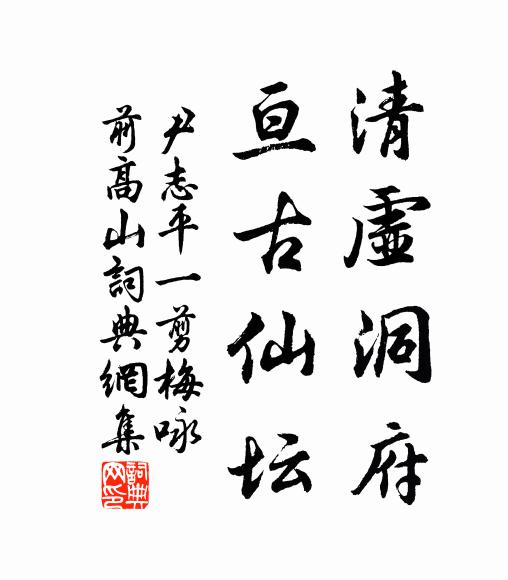 清虚洞府
亘古仙坛
尹志平一剪梅咏
前高山詞典網集
詞典网印